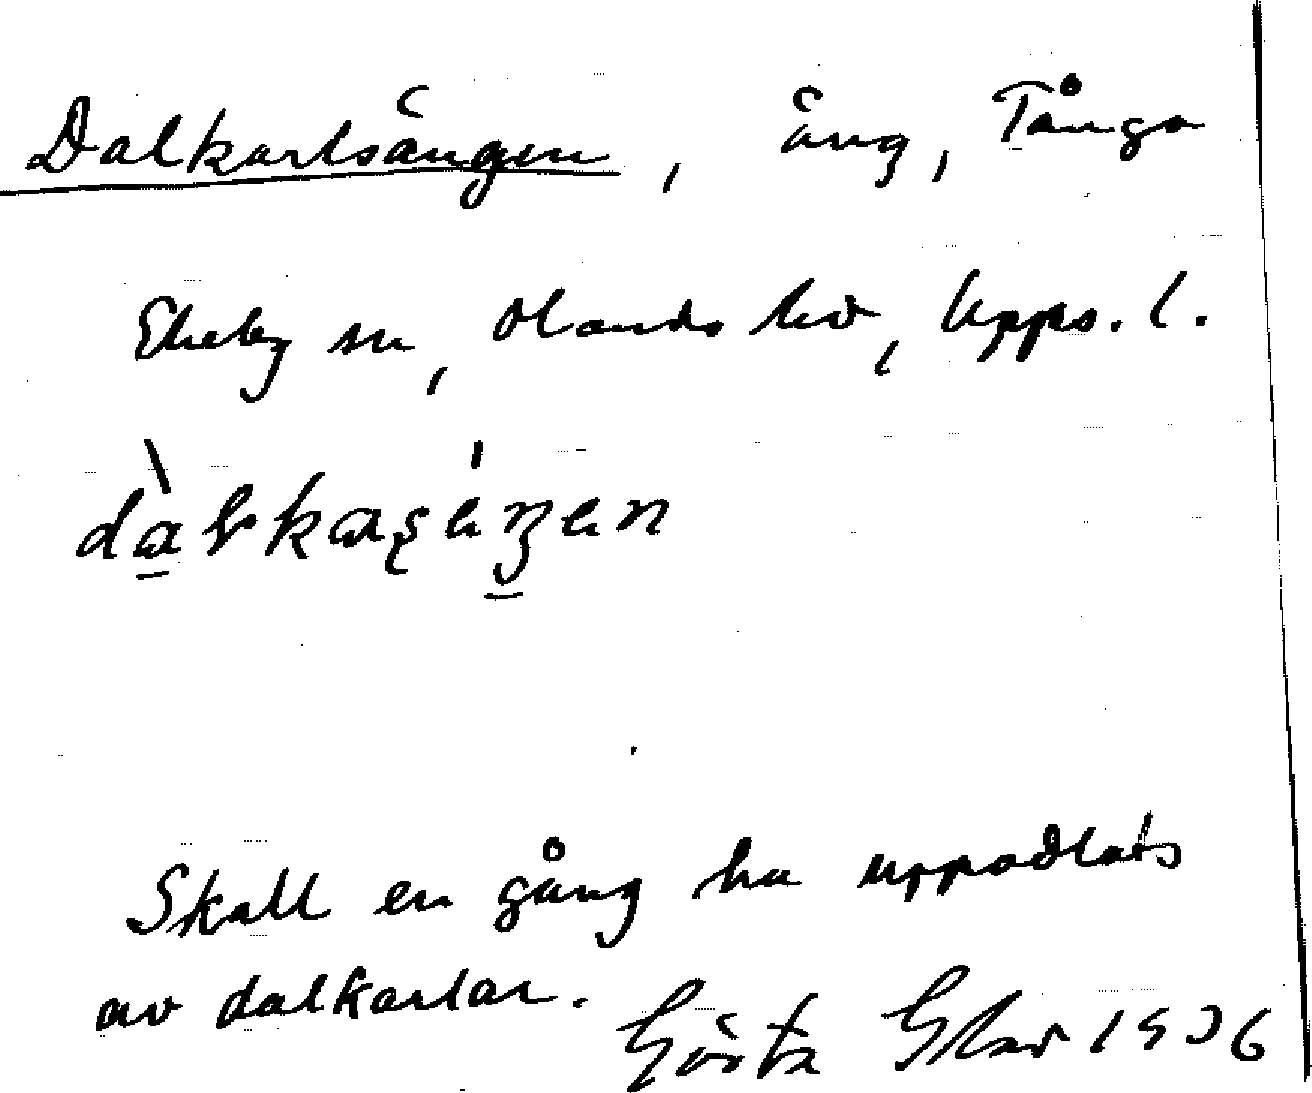 Dalkarlsängen, äng, Tånga
Ekeby sn, Olands hd, Upps. l.
Skall en gång ha uppodlats
av dalkarlar. Gösta Elar 1936